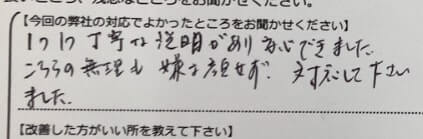 【今回の弊社の対応でよかったところをお聞かせください】
1つ1つ丁寧な説明があり 安心できました。
こちらの無理も 嫌な顔せず、対応して下さい
ました。
【改善した方がいい所を教えて下さい】